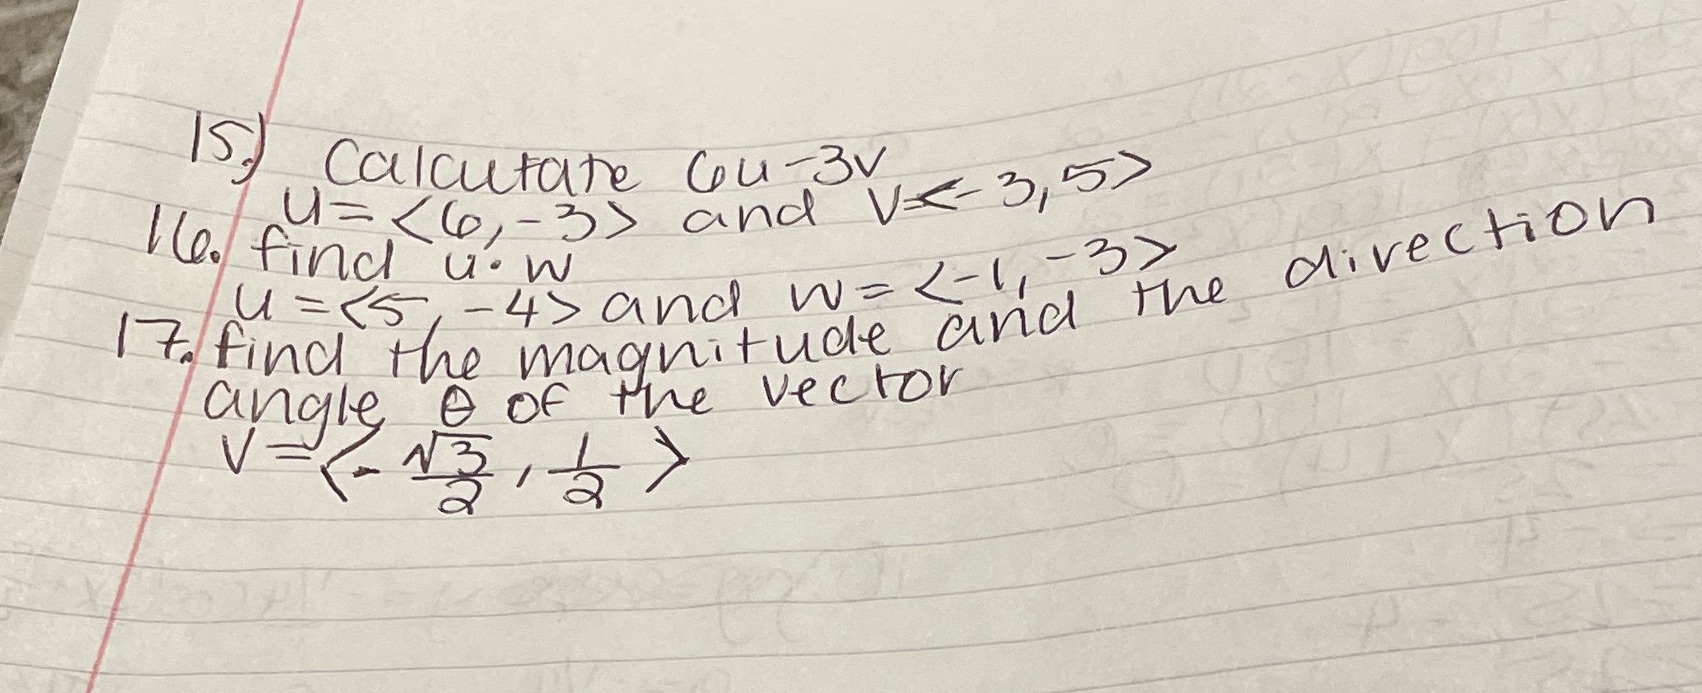 15.) Calculate 6u-3v
u=<6,-3> and v=<-3,5>
16. find u·w
u=<5,-4> and w=<-1,-3>
17. find the magnitude and the direction
angle θ of the vector
v=<-√3/2, 1/2>